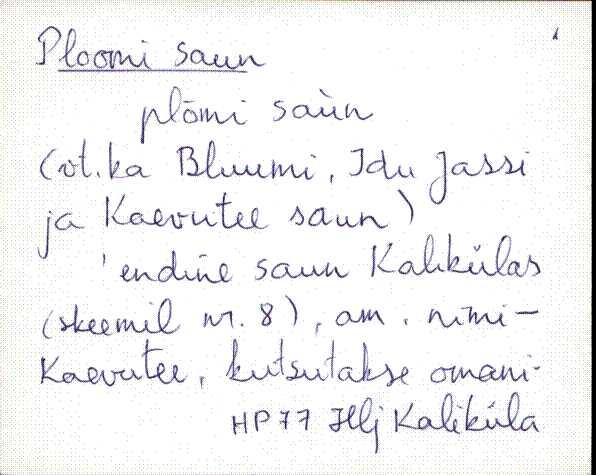 Ploomi saun
plōmi saùn
(vt. ka Bluumi, Idu Jassi
ja Kaevutee saun)
'endine saun Kaliküla
(skeemil nr. 8), am. nimi-
Kaevutee, kutsutakse omani-
HP77 Hlj Kaliküla